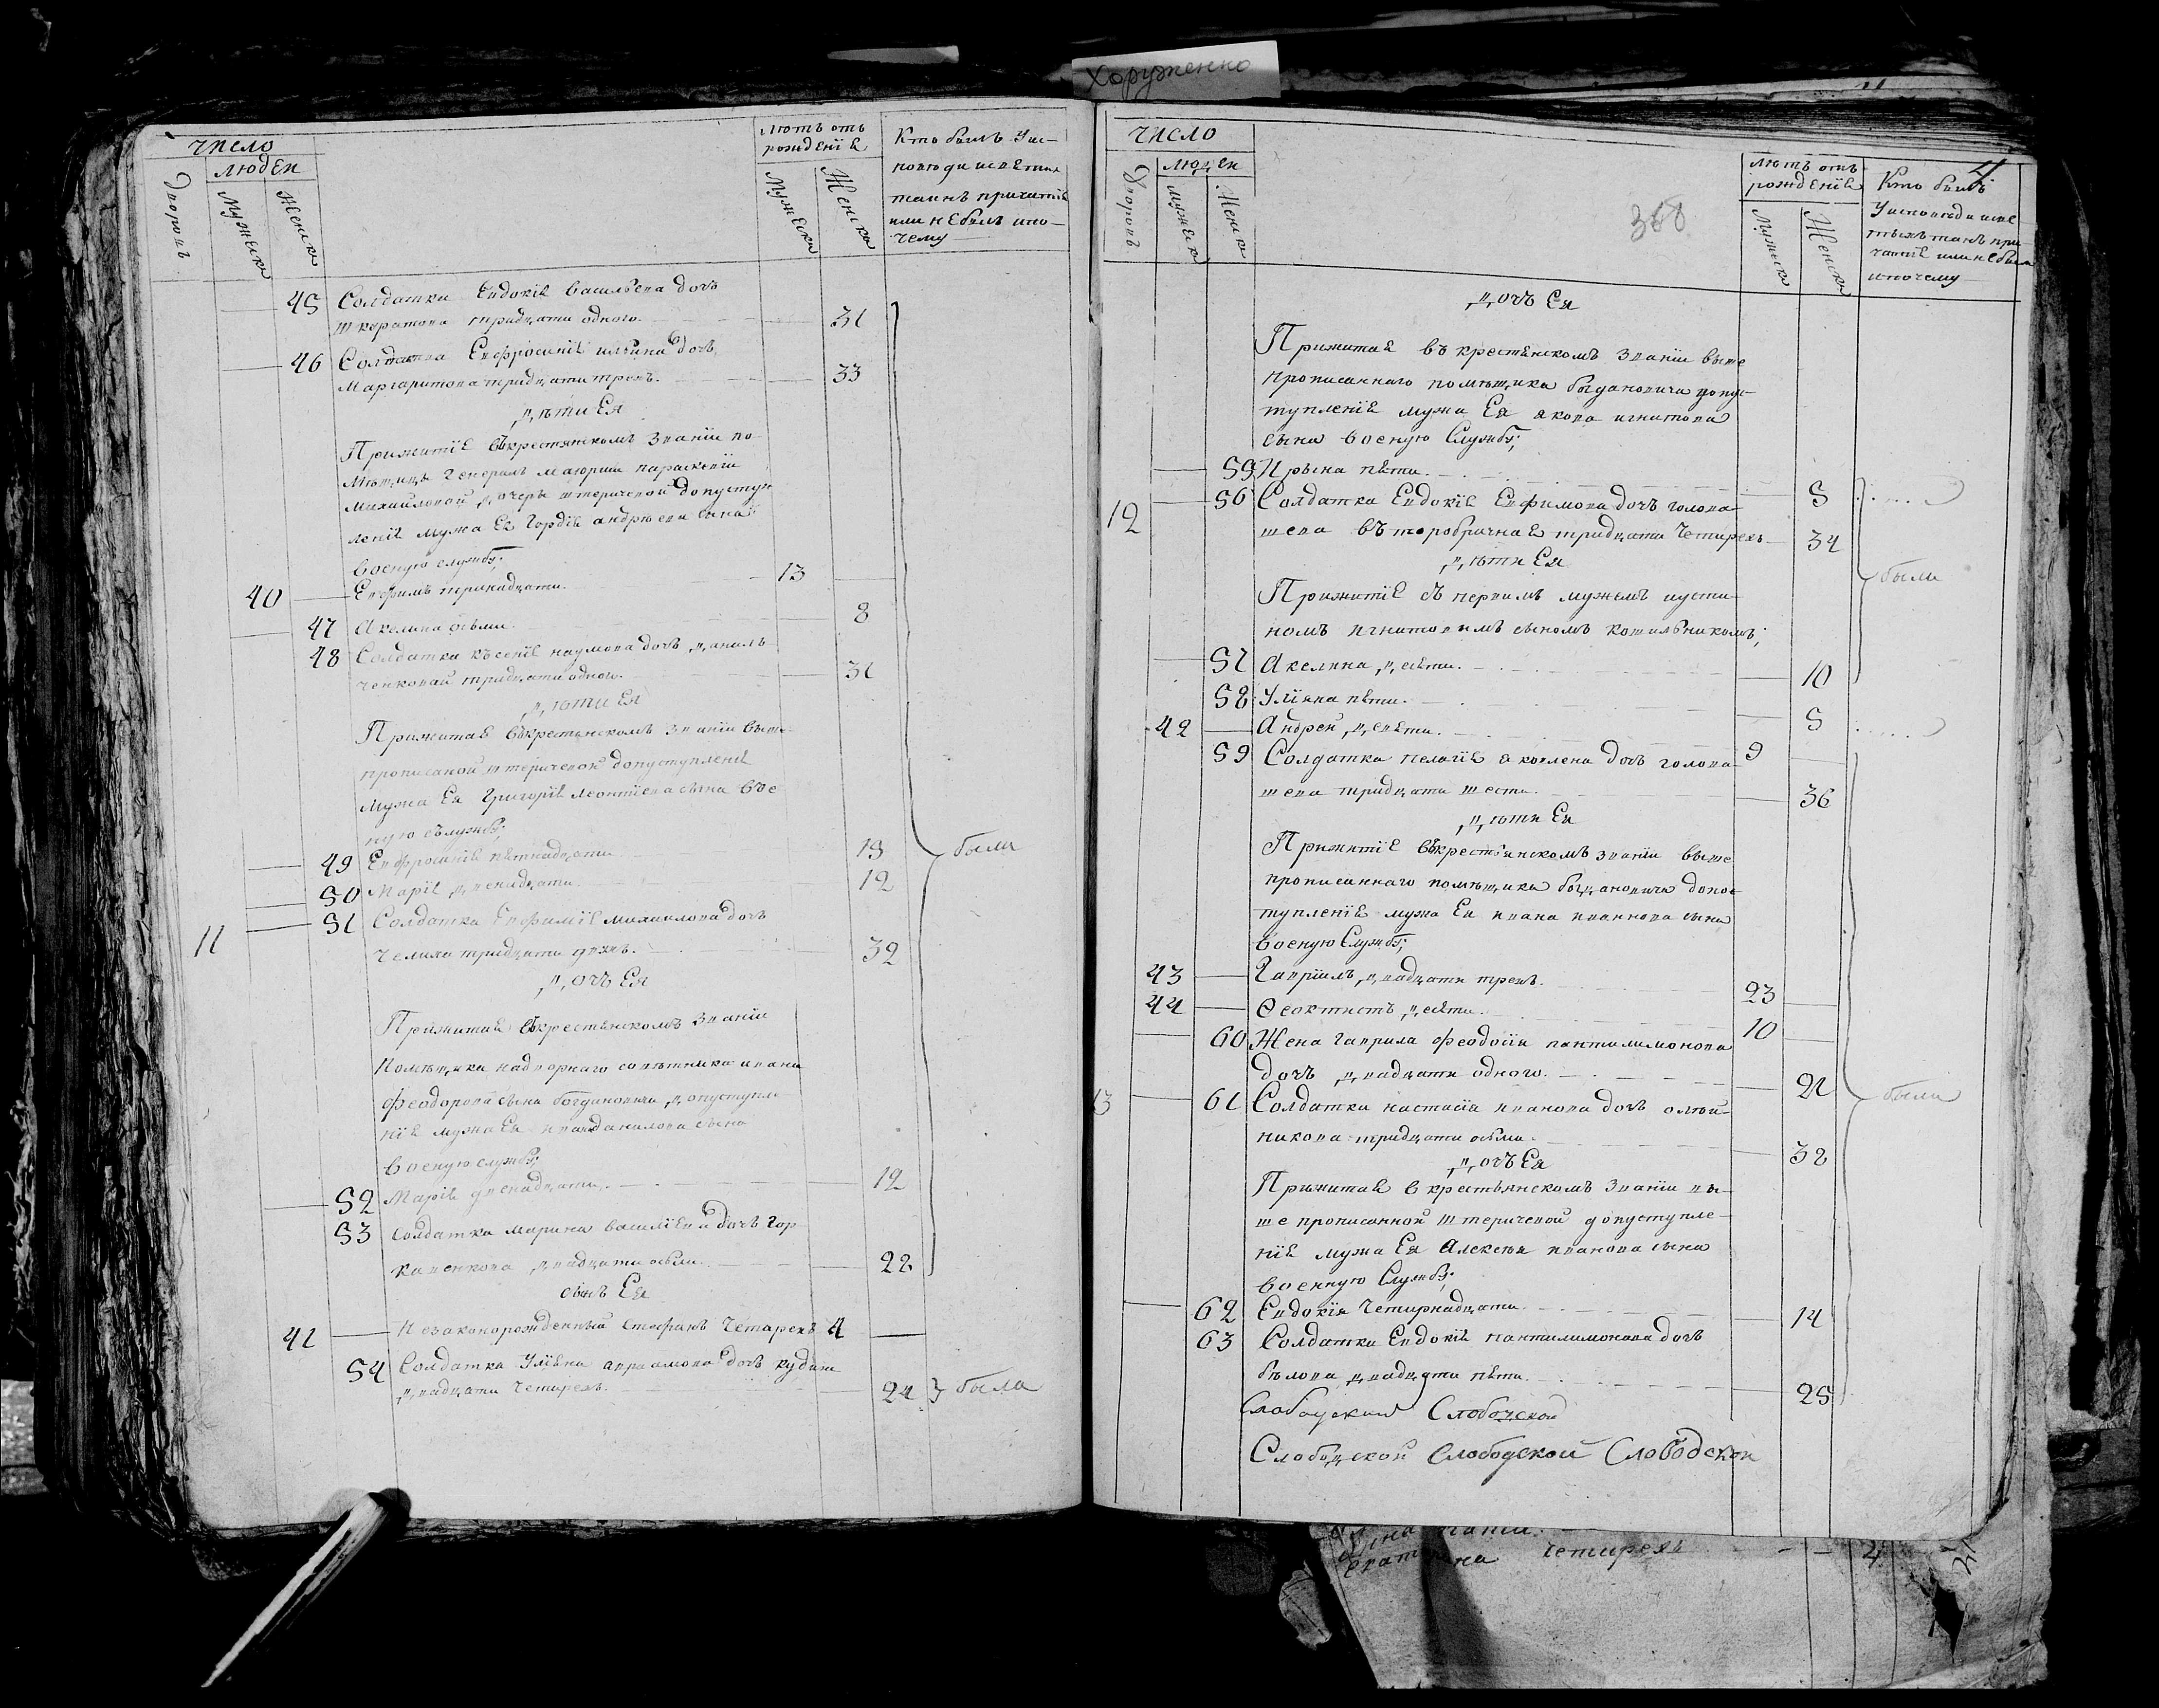 Хоруженко
число
людей
Дворовъ
Мужеска
Женска
лютъ отъ
рожденіе
Мужеска
Женска
Кто былъ Уис-
поведи исветих
таинъ причитіе
или небылъ ипо-
чему
45 Солдатка Евдокіе васильева дочъ
шкуратова тридцати одного. 31
46 Солдатка Евфросиніе ильина дочъ
Маргаритова тридцати трехъ. 33
дѣти Ея
Прижитіе въкрестянскомъ званіи по-
мѣщицы Генералъ Маюрши параскевіи
михайловой дочери штеричевой допуступ
леніе мужа Ея Гордіе андрѣева сына
военую службу;
40 Евфимъ тринадцати. 13
47 Акелина осьми. 8
48 Солдатка къ сеніе наумова дочъ даниль
ченковай тридцати одного. 31
дѣти Ея
Прижитае въкрестянскомъ званіи выше
прописаной штеричевой допуступленіе
Мужа Ея Григоріе леонтіева сына вое
ную службу;
49 Евфросиніе пятнадцати 15
50 Маріе двенадцати. 12
11 51 Солдатка Евфиміе михаилова дочъ
челиха тридцати двухъ. 32
дочъ Ея
Прижитае въкрестянскомъ званіи
Помѣщика надворнаго савѣтника ивана
феодорова сына богдановича допуступле
ніе мужа Ея ивана данилова сына
военую службу;
52 Маріе двенадцати. 12
53 Солдатка марина василіева дочъ гор
кавенкова двадцати осьми. 28
были
сынъ Ея
41 Незаконорожденный Стефанъ Четырехъ 4
54 Солдатка Уліяна авраамова дочъ кудин
двадцати четирехъ. 24 была
число
людей
Дворовъ
Мужеска
Женска
368
лютъ отъ
рожденіе
Мужеска
Женска
4
Кто былъ
Уисповѣди исве
тыхъ таинъ при
чатіе или небыл
ипочему
дочъ Ея
Прижитае въ крестянскомъ званіи выше
прописаннаго помѣщика богдановича допус-
тупленіе мужа Ея якова игнатова
сына военую Службу;
55 Ирына пяти. 5
12 56 Солдатка Евдокіе Евфимова дочъ голова-
шева въторобрачнае тридцати Четирехъ 34
дѣти Ея
были
Прижитіе съ первимъ мужемъ иусти-
номъ игнатовимъ сыномъ котильниковъ;
57 Акелина десяти. 10
58 Уліяна пяти. 5
42 Андрей девяти. 9
59 Солдатка пелагіе яковлева дочъ голова-
шева тридцати шести. 36
дѣти Ея
Прижитіе въкрестьянскомъ званіи выше
прописаннаго помѣщика богдановича допос-
тупленіе мужа Ея ивана иванова сына
военую Службу;
43 Гавріилъ двадцати трехъ. 23
44 Феоктистъ десяти. 10
60 Жена Гаврила феодосіи пантилимонова
дочъ двадцати одного. 21
13 61 Солдатка настасіа иванова дочъ олѣй-
никова тридцати осьми. 38
были
дочъ Ея
Прижитае в крестьянскомъ званіи вы-
ше прописанной штеричевой допуступле-
ніе мужа Ея Алексѣя иванова сына
военную Службу;
62 Евдокія Четирнадцати. 14
63 Солдатка Евдокіе пантилимонова дочъ
бѣлова двадцати пяти. 25
Слободской Слободской
Слободской Слободской Слободской
четирехъ 4